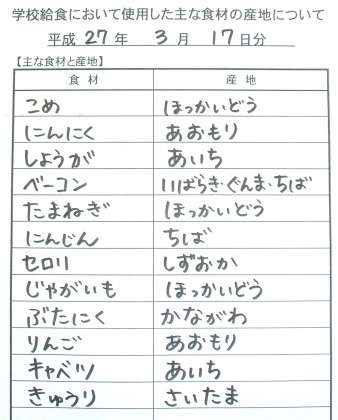 学校給食において使用した主な食材の産地について
平成 27 年 3 月 17 日分
【主な食材と産地】
食材 産地
こめ ほっかいどう
にんにく あおもり
しょうが あいち
ベーコン いばらき・ぐんま・ちば
たまねぎ ほっかいどう
にんじん ちば
セロリ しずおか
じゃがいも ほっかいどう
ぶたにく かながわ
りんご あおもり
キャベツ あいち
きゅうり さいたま